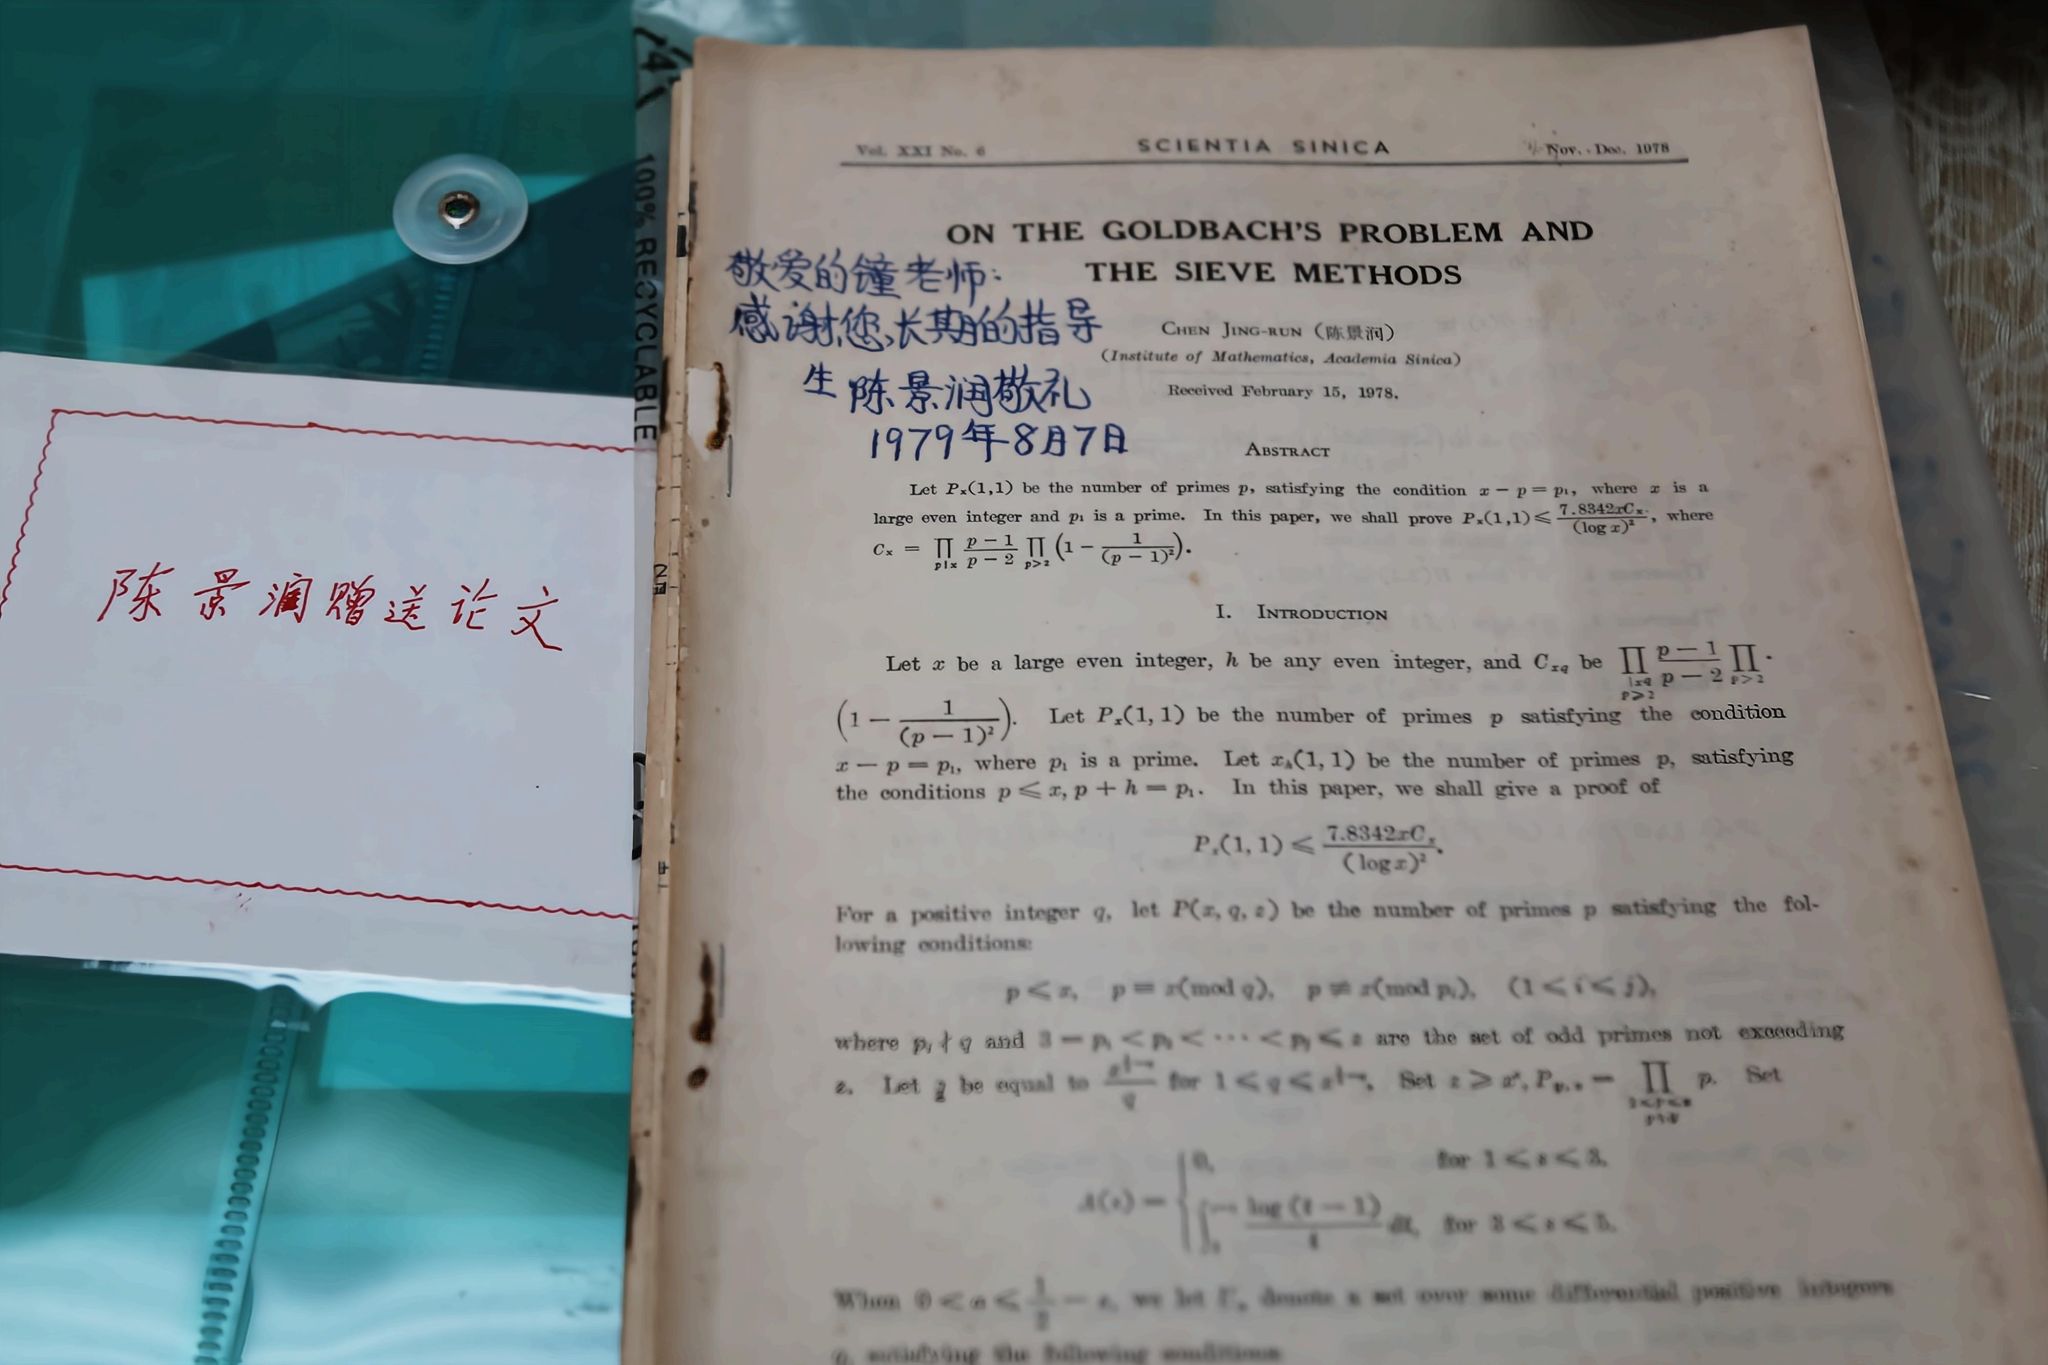 100% RECYCLABLE
陈景润赠送论文
Vol. XXI No. 6 SCIENTIA SINICA Nov.-Dec. 1978
ON THE GOLDBACH'S PROBLEM AND
THE SIEVE METHODS
敬爱的锺老师:
感谢您长期的指导
生 陈景润敬礼
1979年8月7日
CHEN JING-RUN (陈景润)
(Institute of Mathematics, Academia Sinica)
Received February 15, 1978.
ABSTRACT
Let Pₓ(1,1) be the number of primes p, satisfying the condition x − p = p₁, where x is a
large even integer and p₁ is a prime. In this paper, we shall prove Pₓ(1,1) ≤ 7.8342xCₓ/(log x)², where
Cₓ = ∏_{p|x} (p − 1)/(p − 2) ∏_{p>2} (1 − 1/(p − 1)²).
I. INTRODUCTION
Let x be a large even integer, h be any even integer, and C_{xq} be ∏_{p|xq, p>2} (p − 1)/(p − 2) ∏_{p>2} ·
(1 − 1/(p − 1)²). Let Pₓ(1, 1) be the number of primes p satisfying the condition
x − p = p₁, where p₁ is a prime. Let xₕ(1, 1) be the number of primes p, satisfying
the conditions p ≤ x, p + h = p₁. In this paper, we shall give a proof of
Pₓ(1, 1) ≤ 7.8342xCₓ/(log x)².
For a positive integer q, let P(x, q, z) be the number of primes p satisfying the fol-
lowing conditions:
p ≤ x, p ≡ x(mod q), p ≢ x(mod pᵢ), (1 ≤ i ≤ j),
where pᵢ ∤ q and 3 = p₁ < p₂ < ··· < pⱼ ≤ z are the set of odd primes not exceeding
z. Let be equal to for Set p. Set
for 1 ≤ s ≤ 3,
log (t − 1) for 3 ≤ s ≤ 5.
When we let denote a set over some differential positive integers
q, satisfying the following conditions